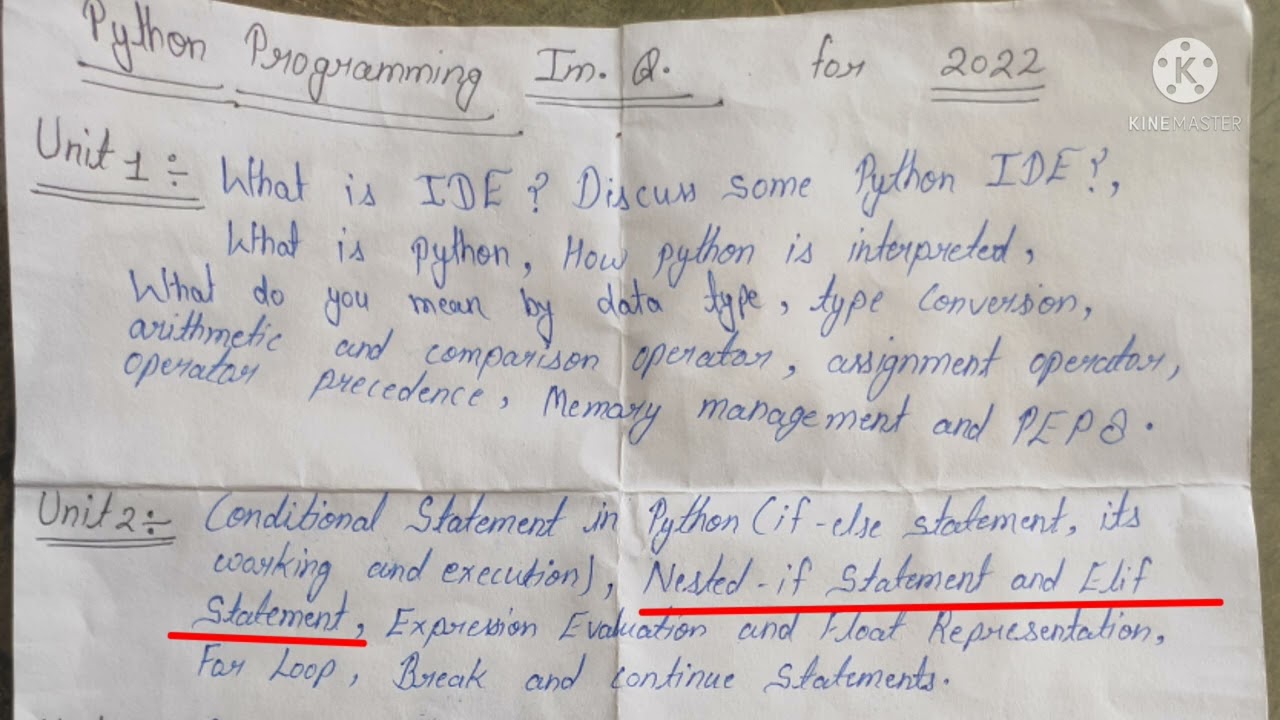 Python Programming Im. Q. for 2022
KINEMASTER
Unit 1 :- What is IDE? Discuss some Python IDE?,
What is python, How python is interpreted,
What do you mean by data type, type conversion,
arithmetic and comparison operator, assignment operator,
operator precedence, Memory management and PEP 8.
Unit 2 :- Conditional Statement in Python (if-else statement, its
working and execution), Nested-if Statement and Elif
Statement, Expression Evaluation and Float Representation,
For Loop, Break and continue Statements.